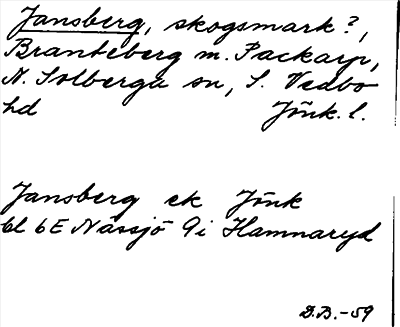 Jansberg, skogsmark?,
Branteberg m. Packarp,
N. Solberga sn, S. Vedbo
hd Jönk. l.
Jansberg ek Jönk
bl 6E Nässjö 9i Hamnaryd
D.B.-59